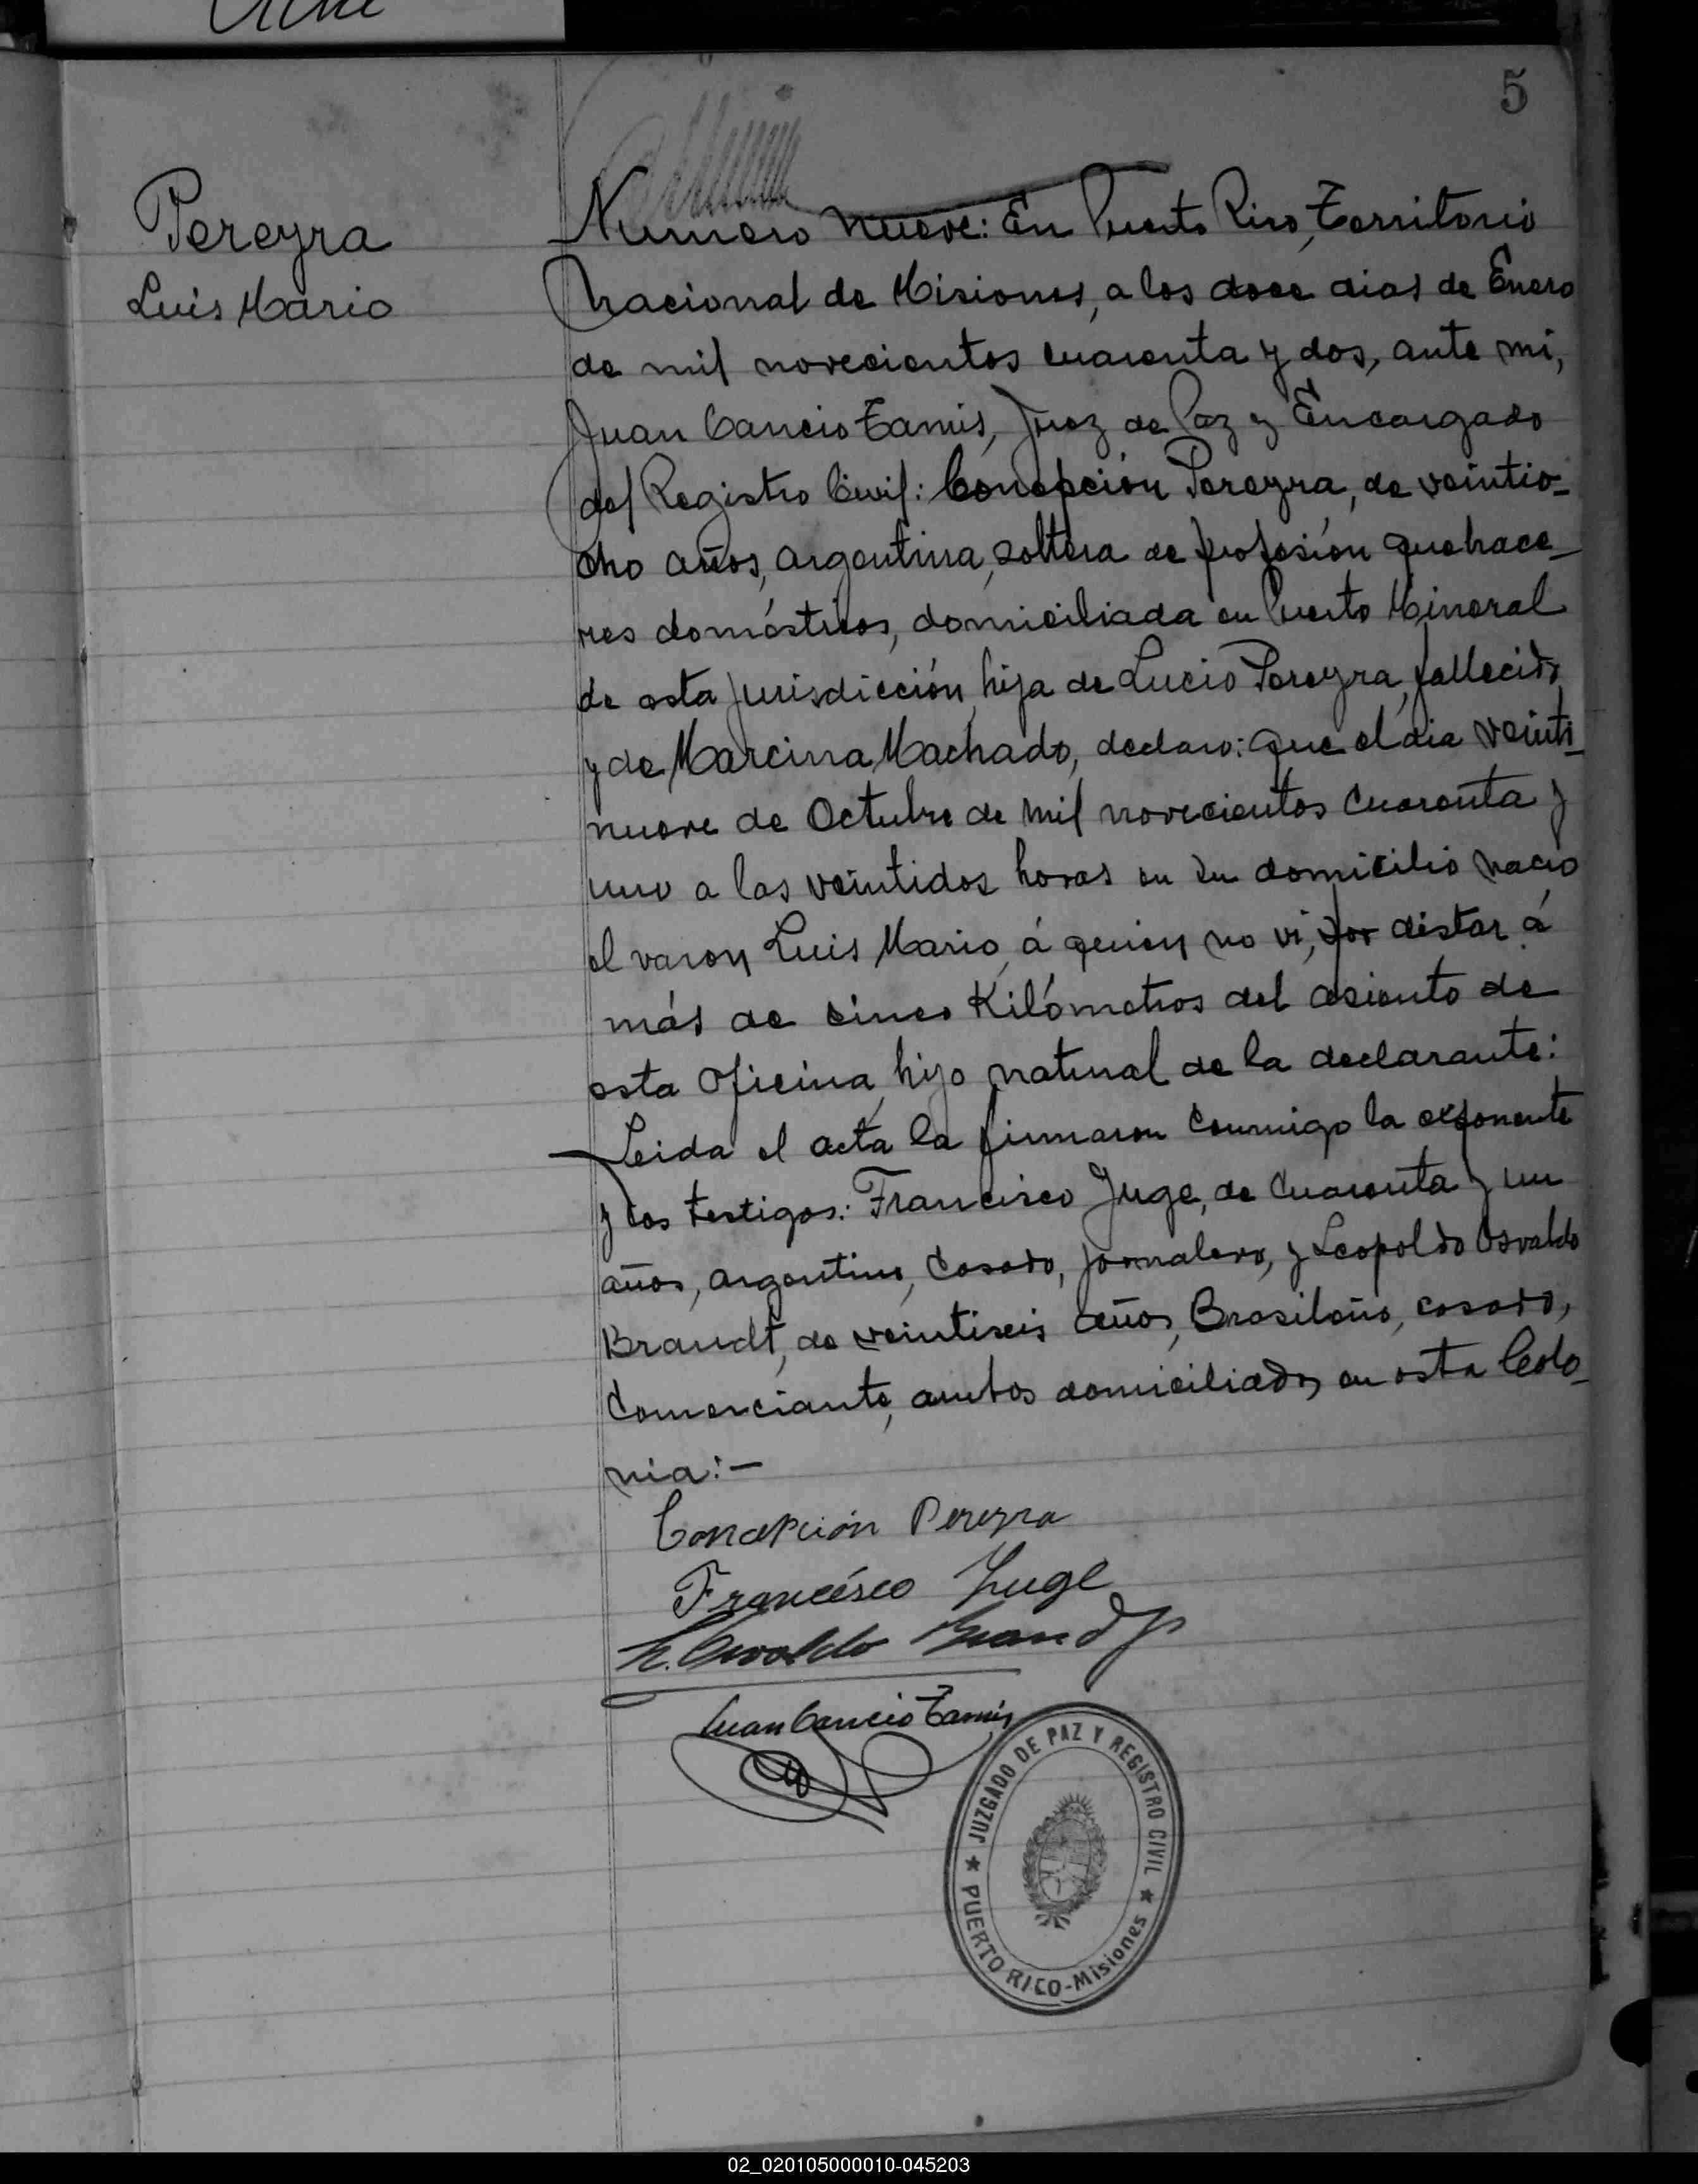 5
Pereyra
Luis Mario
Numero nueve: En Puerto Rico, Territorio
nacional de Misiones, a los doce dias de Enero
de mil novecientos cuarenta y dos, ante mi,
Juan Cancio Tamis, Juez de Paz y Encargado
del Registro Civil: Concepción Pereyra, de veintio-
cho años, argentina, soltera de profesión quehace-
res domésticos, domiciliada en Puerto Mineral
de esta jurisdicción, hija de Lucio Pereyra, fallecido
y de Marcina Machado, declaro: que el dia veinti-
nueve de Octubre de mil novecientos cuarenta y
uno a las veintidos horas en su domicilio nacio
el varon Luis Mario, á quien no vi, por distar á
más de cinco Kilómetros del asiento de
esta Oficina, hijo natural de la declarante:
Leida el acta la firmaron conmigo la exponente
y los testigos: Francisco Juge, de cuarenta y un
años, argentino, casado, jornalero, y Leopoldo Osvaldo
Brandt, de veintiseis años, Brasileño, casado,
comerciante, ambos domiciliados en esta Colo-
nia:—
Concepción Pereyra
Francisco Juge
L. Osvaldo Brandt
Juan Cancio Tamis
JUZGADO DE PAZ Y REGISTRO CIVIL
★ PUERTO RICO-Misiones ★
02_020105000010-045203